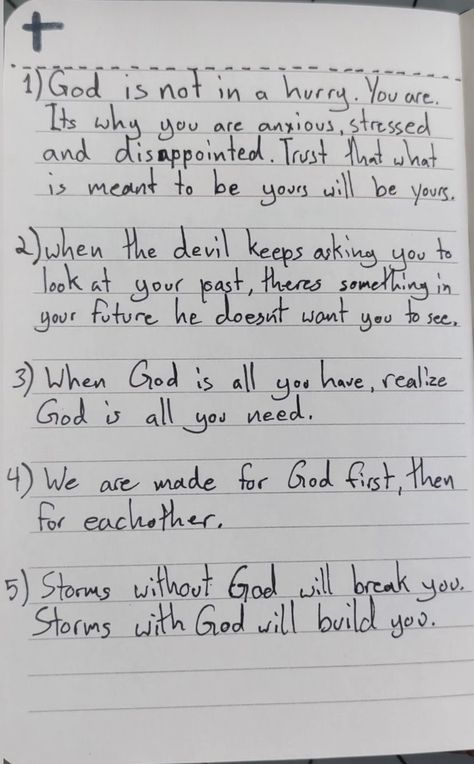 1) God is not in a hurry. You are.
Its why you are anxious, stressed
and disappointed. Trust that what
is meant to be yours will be yours.
2) when the devil keeps asking you to
look at your past, theres something in
your future he doesnt want you to see.
3) When God is all you have, realize
God is all you need.
4) We are made for God first, then
for eachother.
5) Storms without God will break you.
Storms with God will build you.